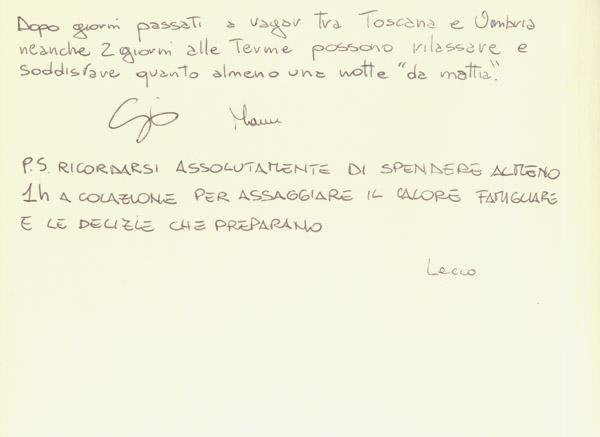 Dopo giorni passati a vagar tra Toscana e Umbria
neanche 2 giorni alle Terme possono rilassare e
soddisfare quanto almeno una notte "da mattia".
P.S. RICORDARSI ASSOLUTAMENTE DI SPENDERE ALMENO
1h A COLAZIONE PER ASSAGGIARE IL CALORE FAMIGLIARE
E LE DELIZIE CHE PREPARANO
Lecco